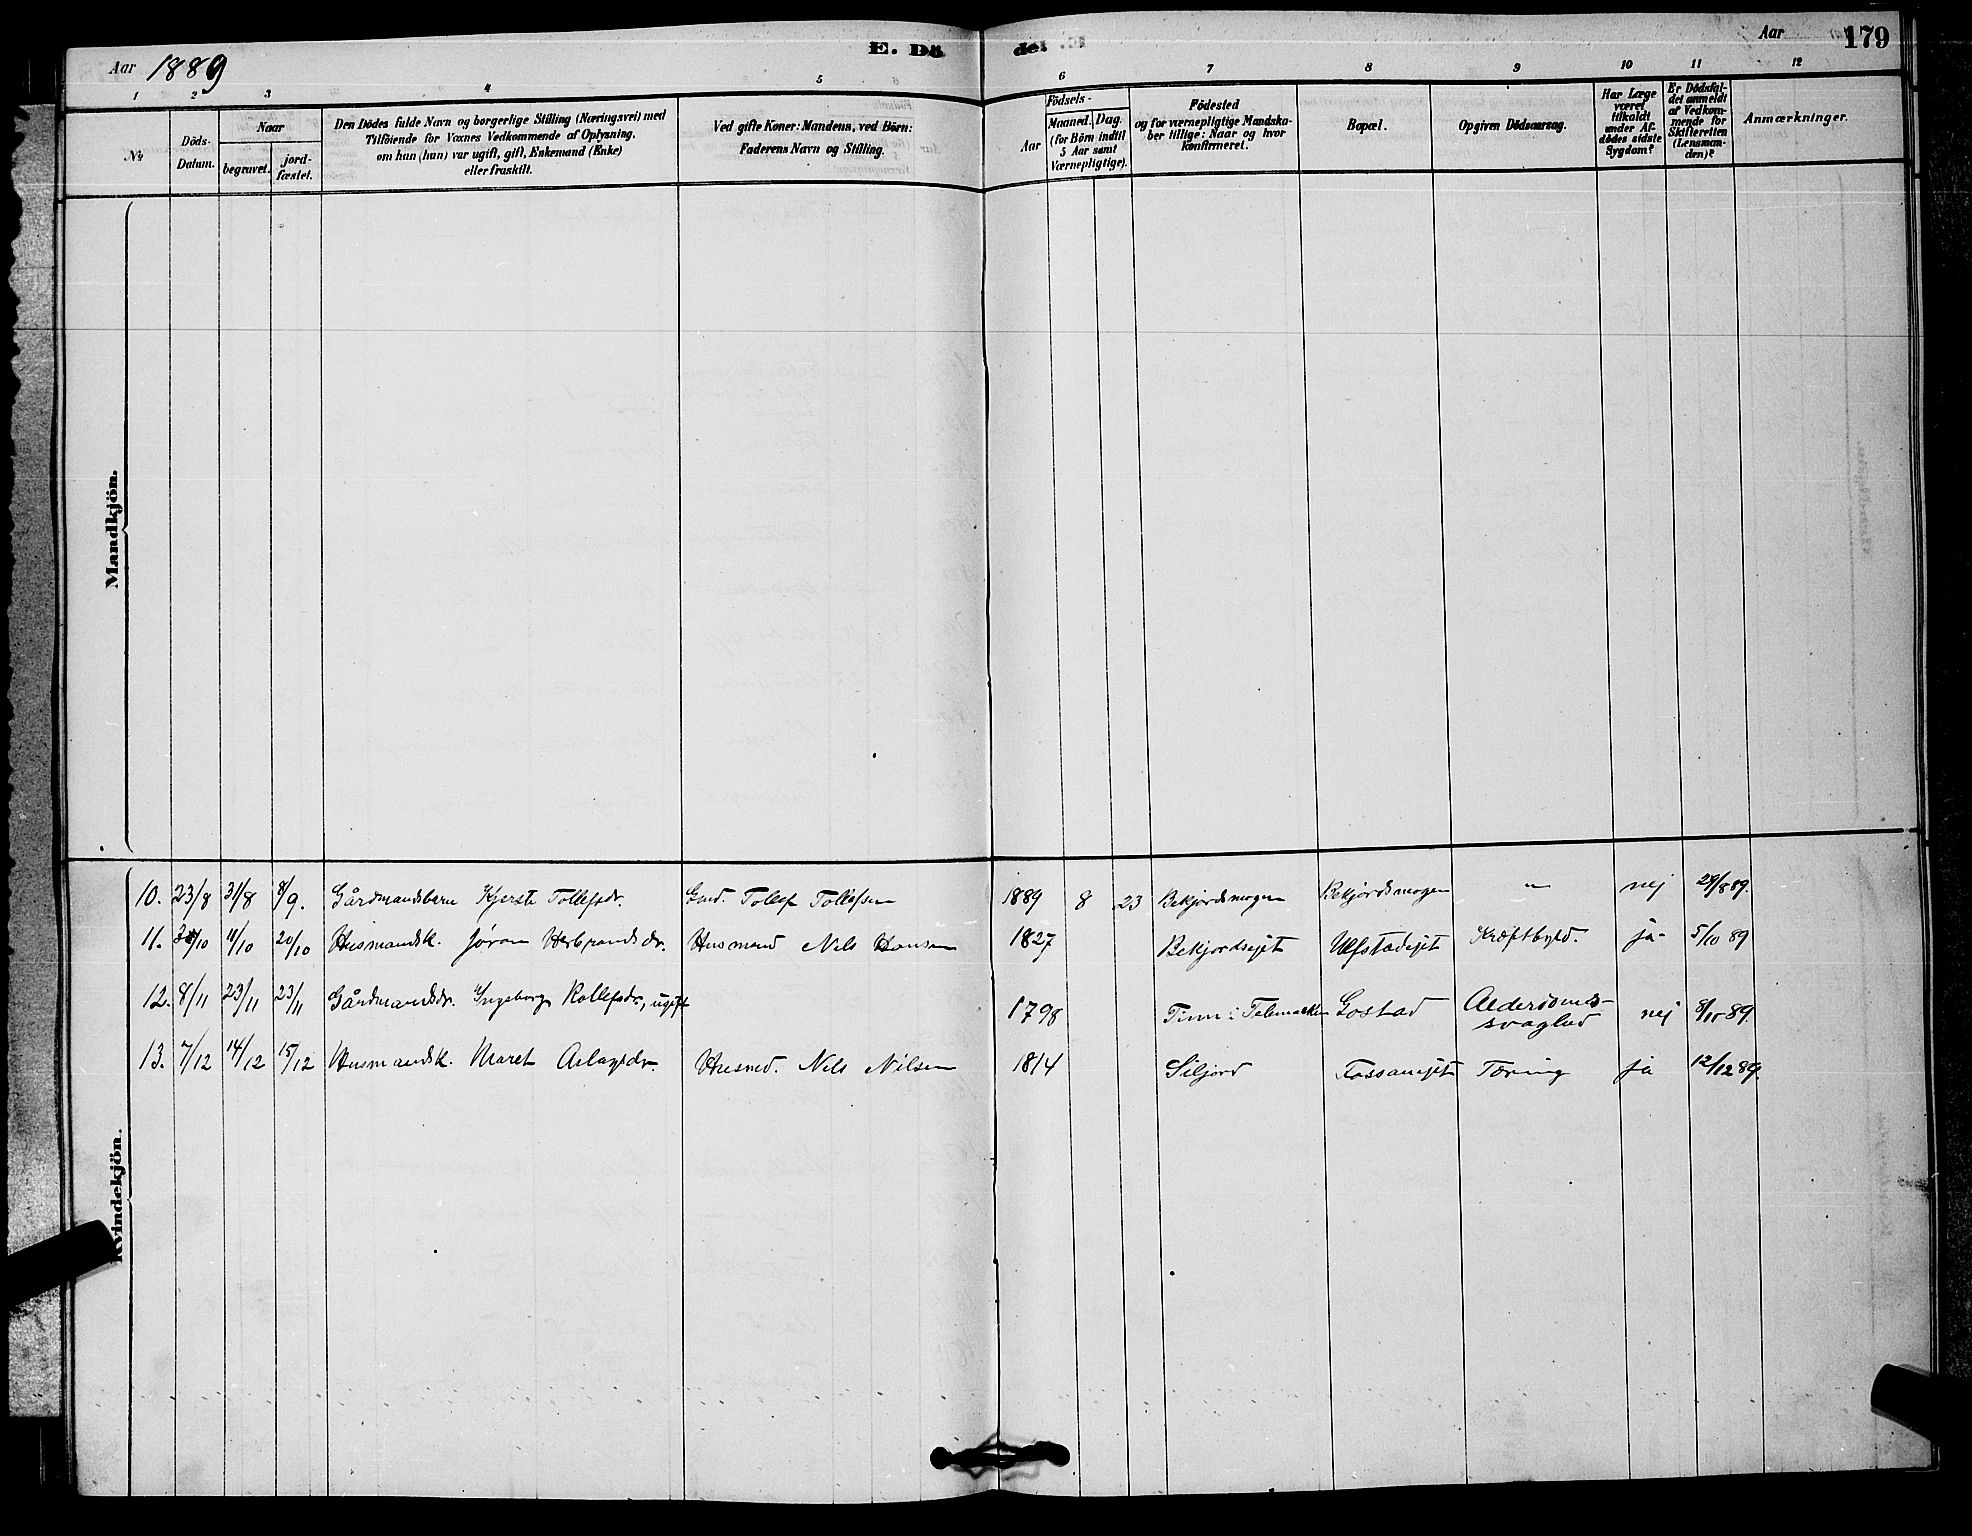 Aar 1889 E. Dö de. Aar 179
1 2 3 4 5 6 7 8 9 10 11 12
№ Döds-Datum. Naar begravet. jord-fæstet. Den Dödes fulde Navn og borgerlige Stilling (Næringsvei) med Tilföiende for Voxnes Vedkommende af Oplysning, om han (hun) var ugift, gift, Enkemand (Enke) eller fraskilt. Ved gifte Koner: Mandens, ved Börn: Faderens Navn og Stilling. Födsels- Aar Maaned. Dag. (for Börn indtil 5 Aar samt Værnepligtige). Födested og for værnepligtige Mandska-ber tillige: Naar og hvor konfirmeret. Bopæl. Opgiven Dödsaarsag. Har Læge været tilkaldt under Af-dödes sidste Sygdom? Er Dödsfal-det anmeldt af Vedkom-mende for Skifteretten (Lensman-den)? Anmærkninger.
Mandkjön.
Kvindekjön.
10. 23/8 31/8 8/9. Gårdmandsbarn Kjerste Tollefsdr. Gmd. Tollef Tollefsen 1889 8 23 Bekjordsmogen Bekjordsmogen " nej 28/8 89.
11. /10 11/10 20/10 Husmandsk. Jøran Herbrandsdr. Husmand Nils Hansen 1827 Bekjordsejet Ulfstadejet Kræftbyld. ja 5/10 89
12. 8/11 23/11 23/11 Gårdmandsdr. Ingeborg Rollefsdr, ugift 1798 Tinn i Telemarken Gostad Alderdoms-svaghed nej 89.
13. 7/12 14/12 15/12 Husmandsk. Maret Aslagsdr. Husmd. Nils Nilsen 1814 Siljord Fossanejet Tæring ja 12/12 89.